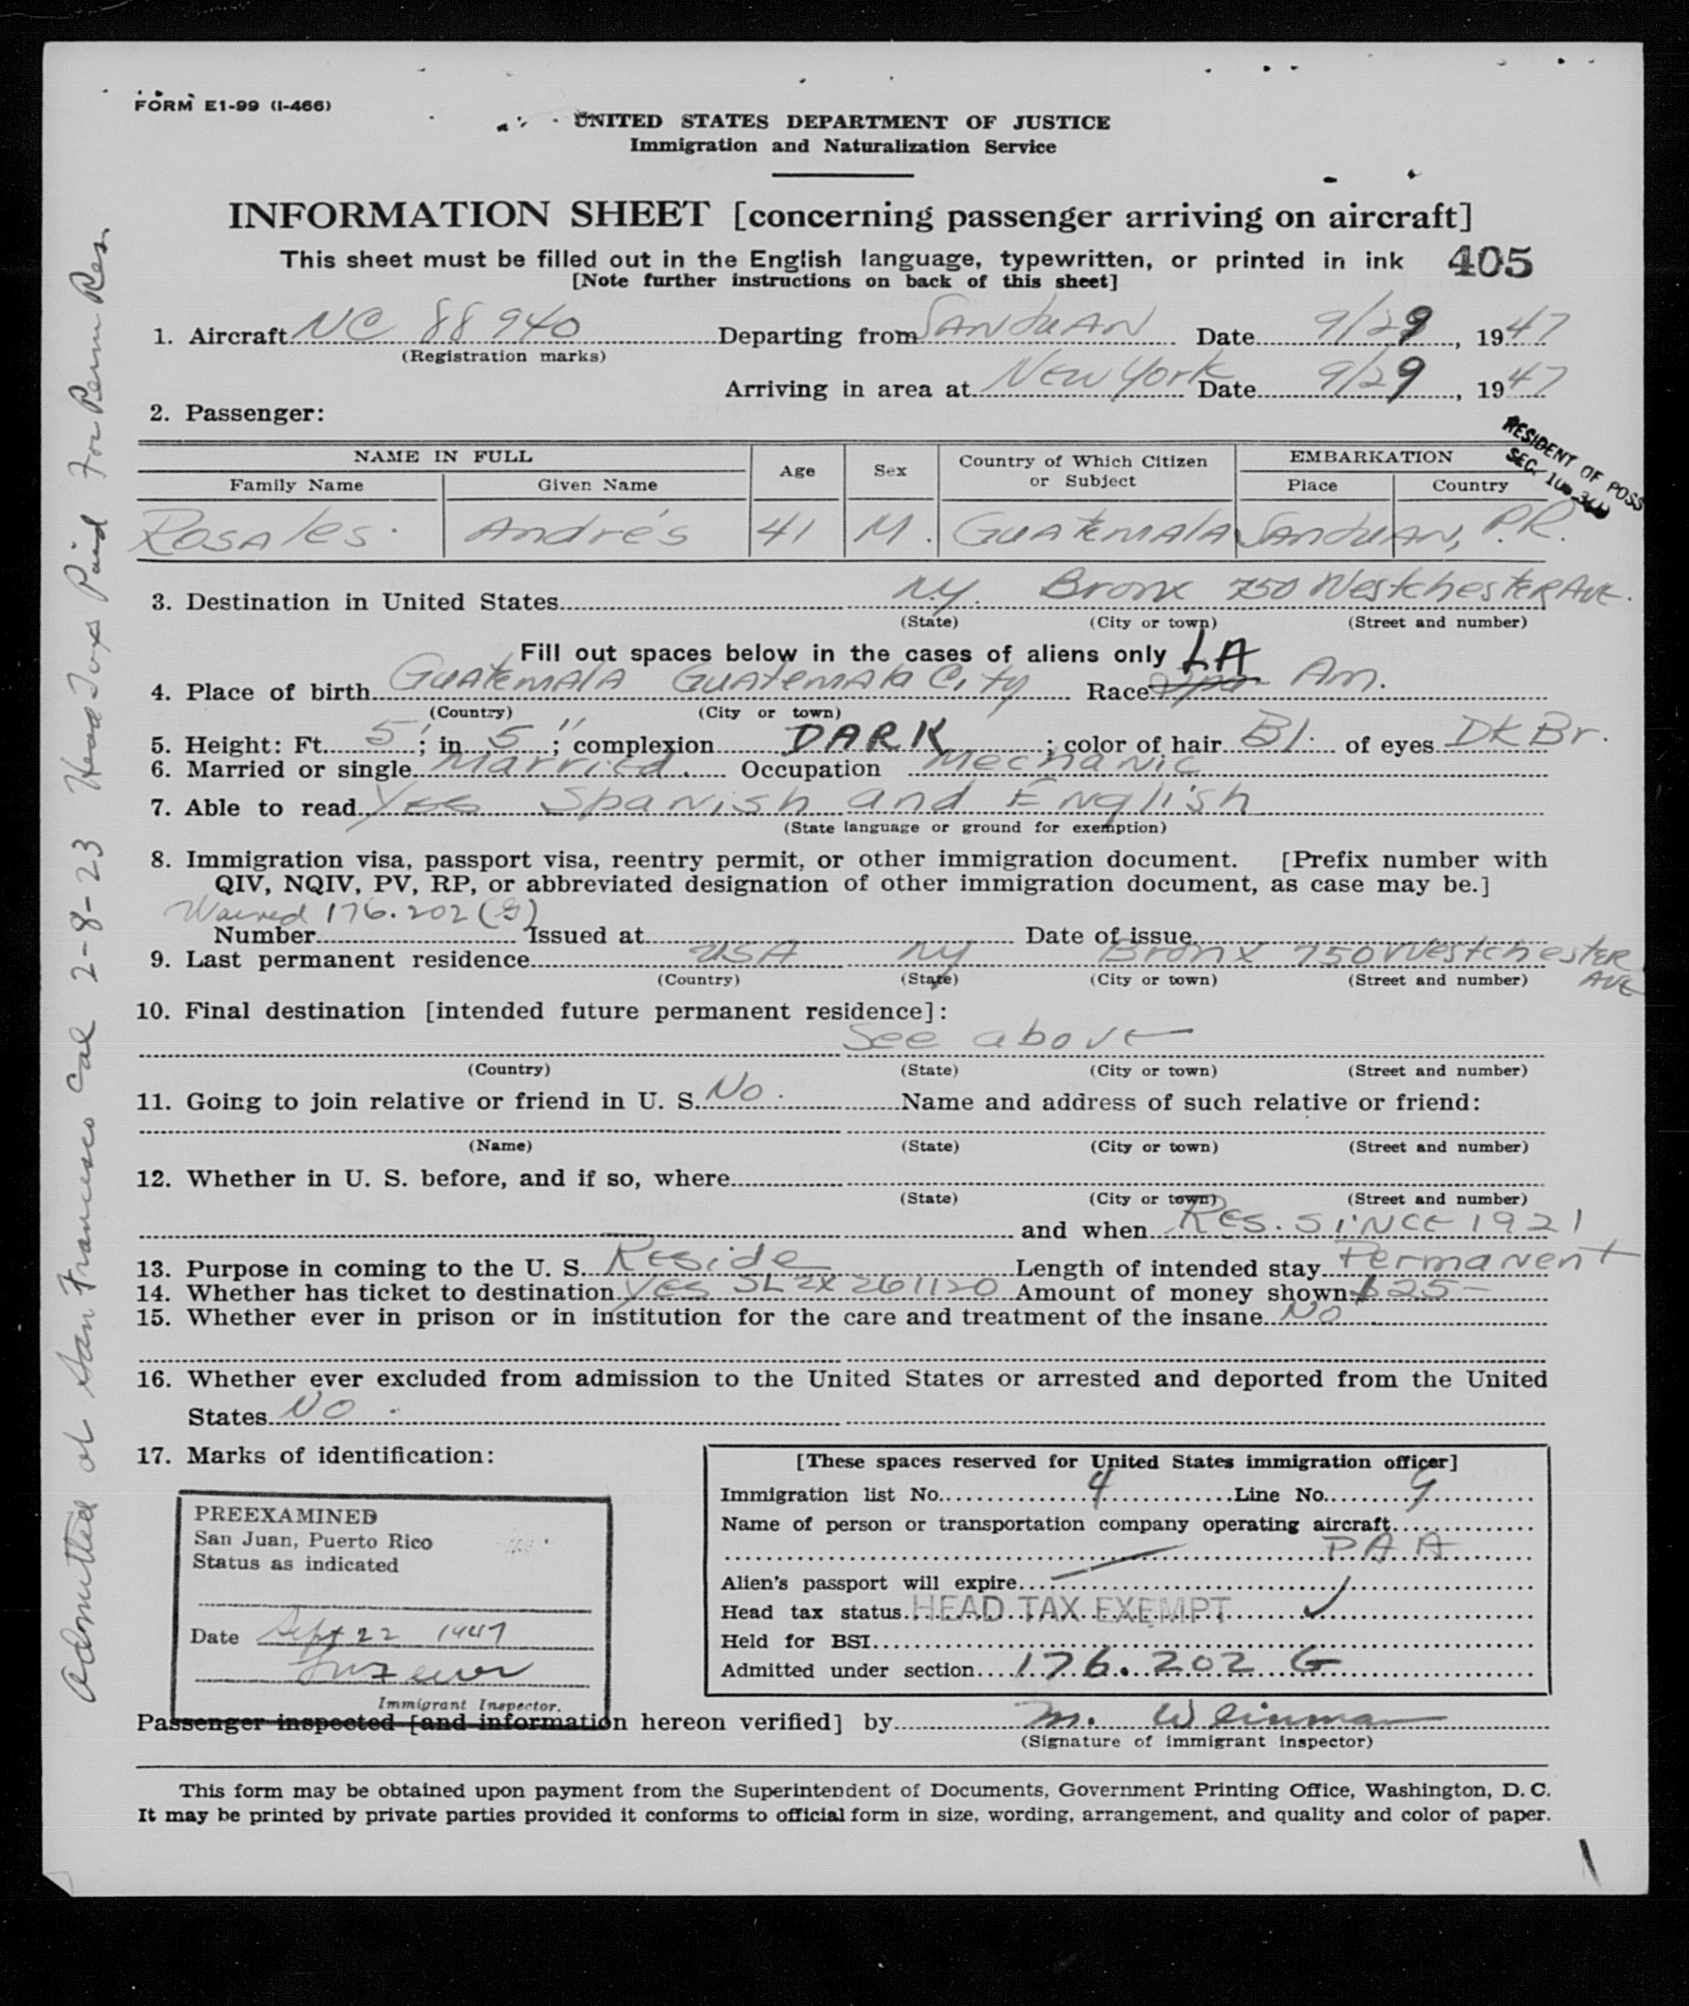 FORM E1-99 (I-466)
UNITED STATES DEPARTMENT OF JUSTICE
Immigration and Naturalization Service
INFORMATION SHEET [concerning passenger arriving on aircraft]
This sheet must be filled out in the English language, typewritten, or printed in ink 405
[Note further instructions on back of this sheet]
1. Aircraft NC 88940 Departing from SANJUAN Date 9/29, 1947
(Registration marks)
Arriving in area at New York Date 9/29, 1947
2. Passenger:
RESIDENT OF POSS
SEC.
NAME IN FULL Age Sex Country of Which Citizen or Subject EMBARKATION
Family Name Given Name Place Country
Rosales. Andrés 41 M. GUATEMALA SANJUAN, P.R.
3. Destination in United States N.Y. Bronx 750 WestchesTER AVE.
(State) (City or town) (Street and number)
Fill out spaces below in the cases of aliens only LA
4. Place of birth GUATEMALA GUATEMALA City Race Am.
(Country) (City or town)
5. Height: Ft. 5'; in. 5"; complexion DARK; color of hair Bl. of eyes DK Br.
6. Married or single Married. Occupation Mechanic
7. Able to read Yes Spanish and English
(State language or ground for exemption)
8. Immigration visa, passport visa, reentry permit, or other immigration document. [Prefix number with
QIV, NQIV, PV, RP, or abbreviated designation of other immigration document, as case may be.]
Waived 176.202(G)
Number Issued at Date of issue
9. Last permanent residence USA NY Bronx 750 WestchesTER AVE
(Country) (State) (City or town) (Street and number)
10. Final destination [intended future permanent residence]:
See above
(Country) (State) (City or town) (Street and number)
11. Going to join relative or friend in U. S. No. Name and address of such relative or friend:
(Name) (State) (City or town) (Street and number)
12. Whether in U. S. before, and if so, where
(State) (City or town) (Street and number)
and when RES. SINCE 1921
13. Purpose in coming to the U. S. Reside Length of intended stay Permanent
14. Whether has ticket to destination Yes SL 2X 261120 Amount of money shown $25-
15. Whether ever in prison or in institution for the care and treatment of the insane No
16. Whether ever excluded from admission to the United States or arrested and deported from the United
States NO.
17. Marks of identification:
PREEXAMINED
San Juan, Puerto Rico
Status as indicated
Date Sept 22 1947
Immigrant Inspector.
[These spaces reserved for United States immigration officer]
Immigration list No. 4 Line No. 9
Name of person or transportation company operating aircraft
PAA
Alien's passport will expire
Head tax status HEAD TAX EXEMPT
Held for BSI
Admitted under section 176.202 G
Passenger inspected [and information hereon verified] by M. Weinman
(Signature of immigrant inspector)
This form may be obtained upon payment from the Superintendent of Documents, Government Printing Office, Washington, D. C.
It may be printed by private parties provided it conforms to official form in size, wording, arrangement, and quality and color of paper.
Admitted at San Francisco Cal 2-8-23 Head Tax Paid For Perm Res.